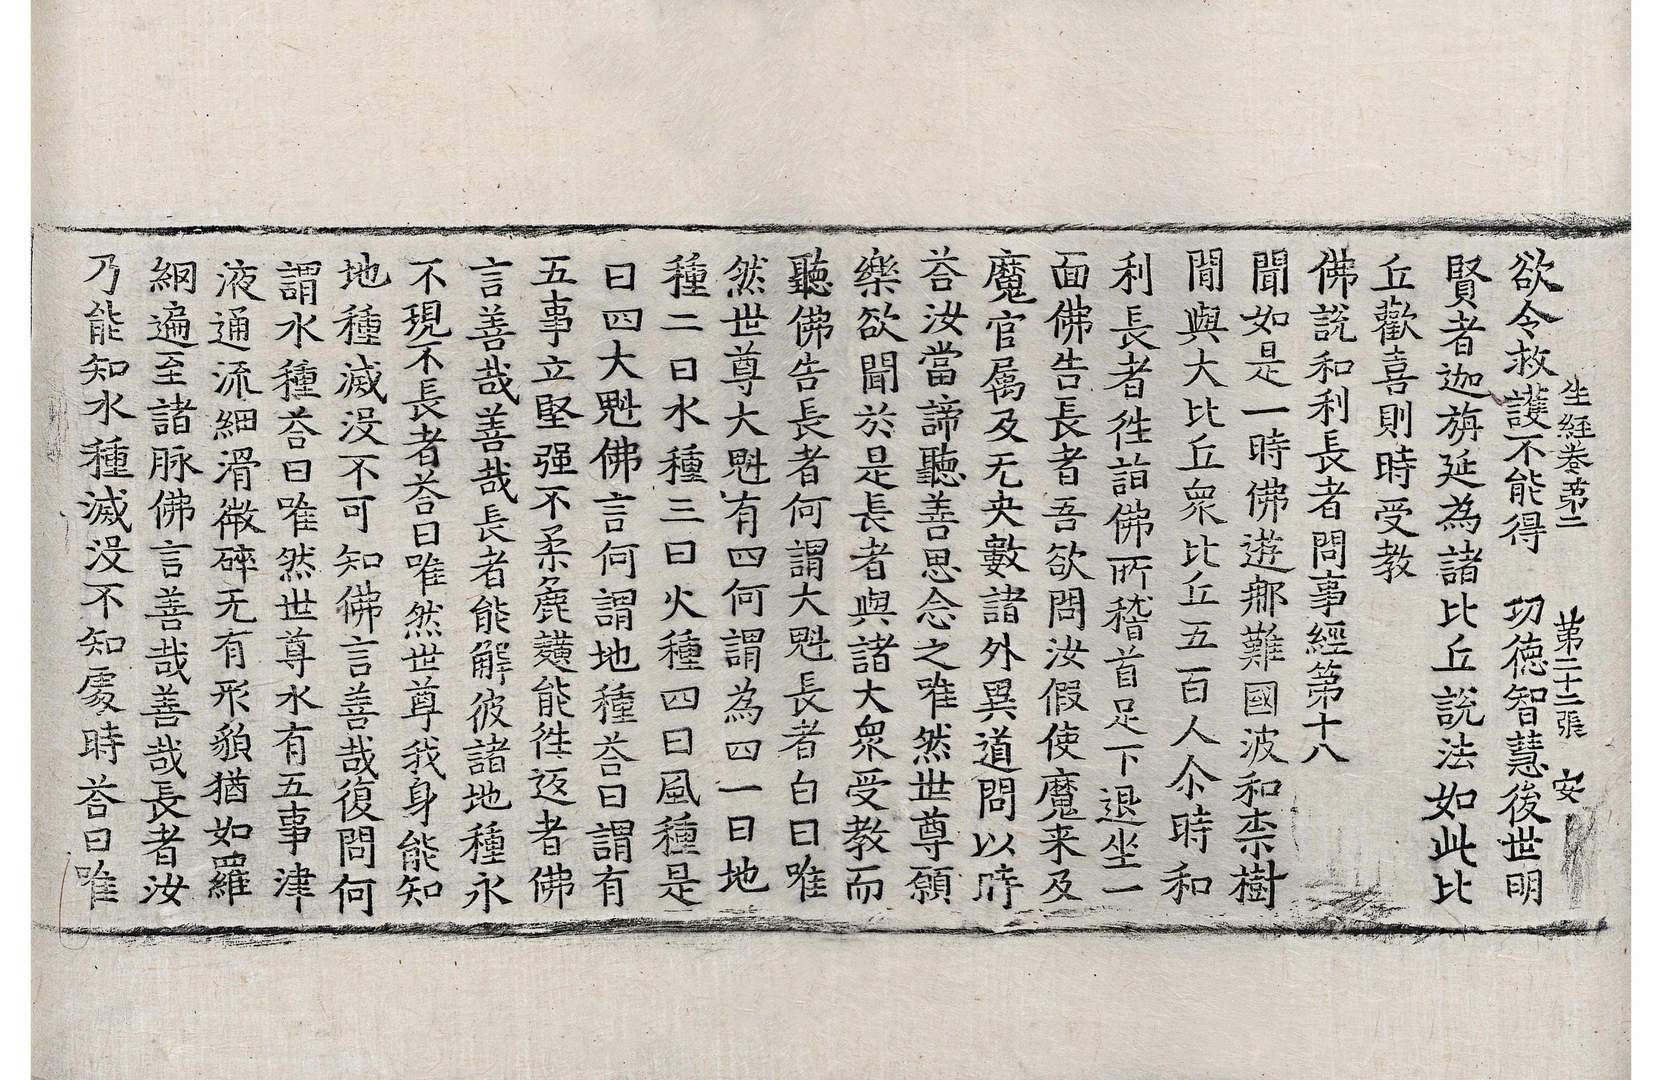 生經卷第二　第二十二張　安
欲令救護不能得　功德智慧後世明
賢者迦旃延為諸比丘說法如此比
丘歡喜則時受教
佛說和利長者問事經第十八
聞如是一時佛遊那難國波和柰樹
間與大比丘衆比丘五百人尒時和
利長者往詣佛所稽首足下退坐一
面佛告長者吾欲問汝假使魔来及
魔官属及无央數諸外異道問以時
荅汝當諦聽善思念之唯然世尊願
樂欲聞於是長者與諸大衆受教而
聽佛告長者何謂大魁長者白曰唯
然世尊大魁有四何謂為四一曰地
種二曰水種三曰火種四曰風種是
曰四大魁佛言何謂地種荅曰謂有
五事立堅强不柔麁䵃能往返者佛
言善哉善哉長者能解彼諸地種永
不現不長者荅曰唯然世尊我身能知
地種滅没不可知佛言善哉復問何
謂水種荅曰唯然世尊水有五事津
液通流細滑微碎无有形貌猶如羅
網遍至諸脉佛言善哉善哉長者汝
乃能知水種滅没不知處時荅曰唯